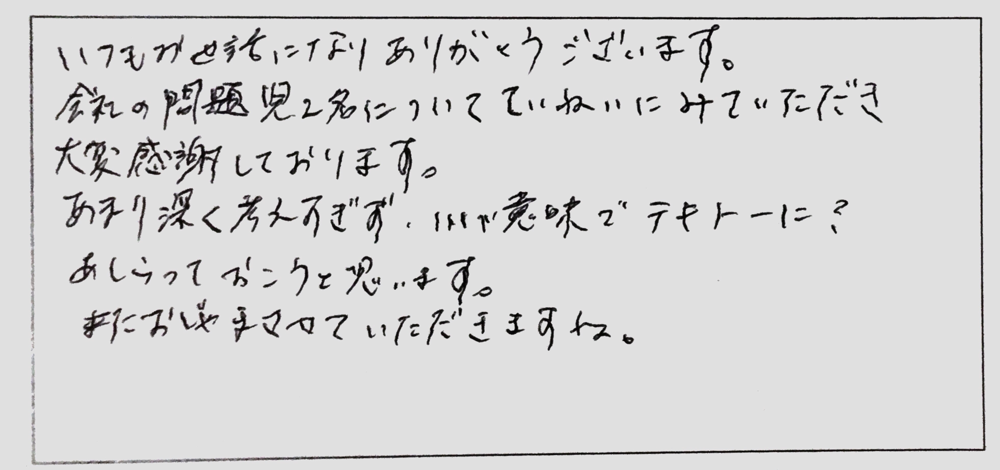 いつもお世話になりありがとうございます。
会社の問題児2名についてていねいにみていただき
大変感謝しております。
あまり深く考えすぎず、いい意味でテキトーに?
あしらっておこうと思います。
またおじゃまさせていただきますね。